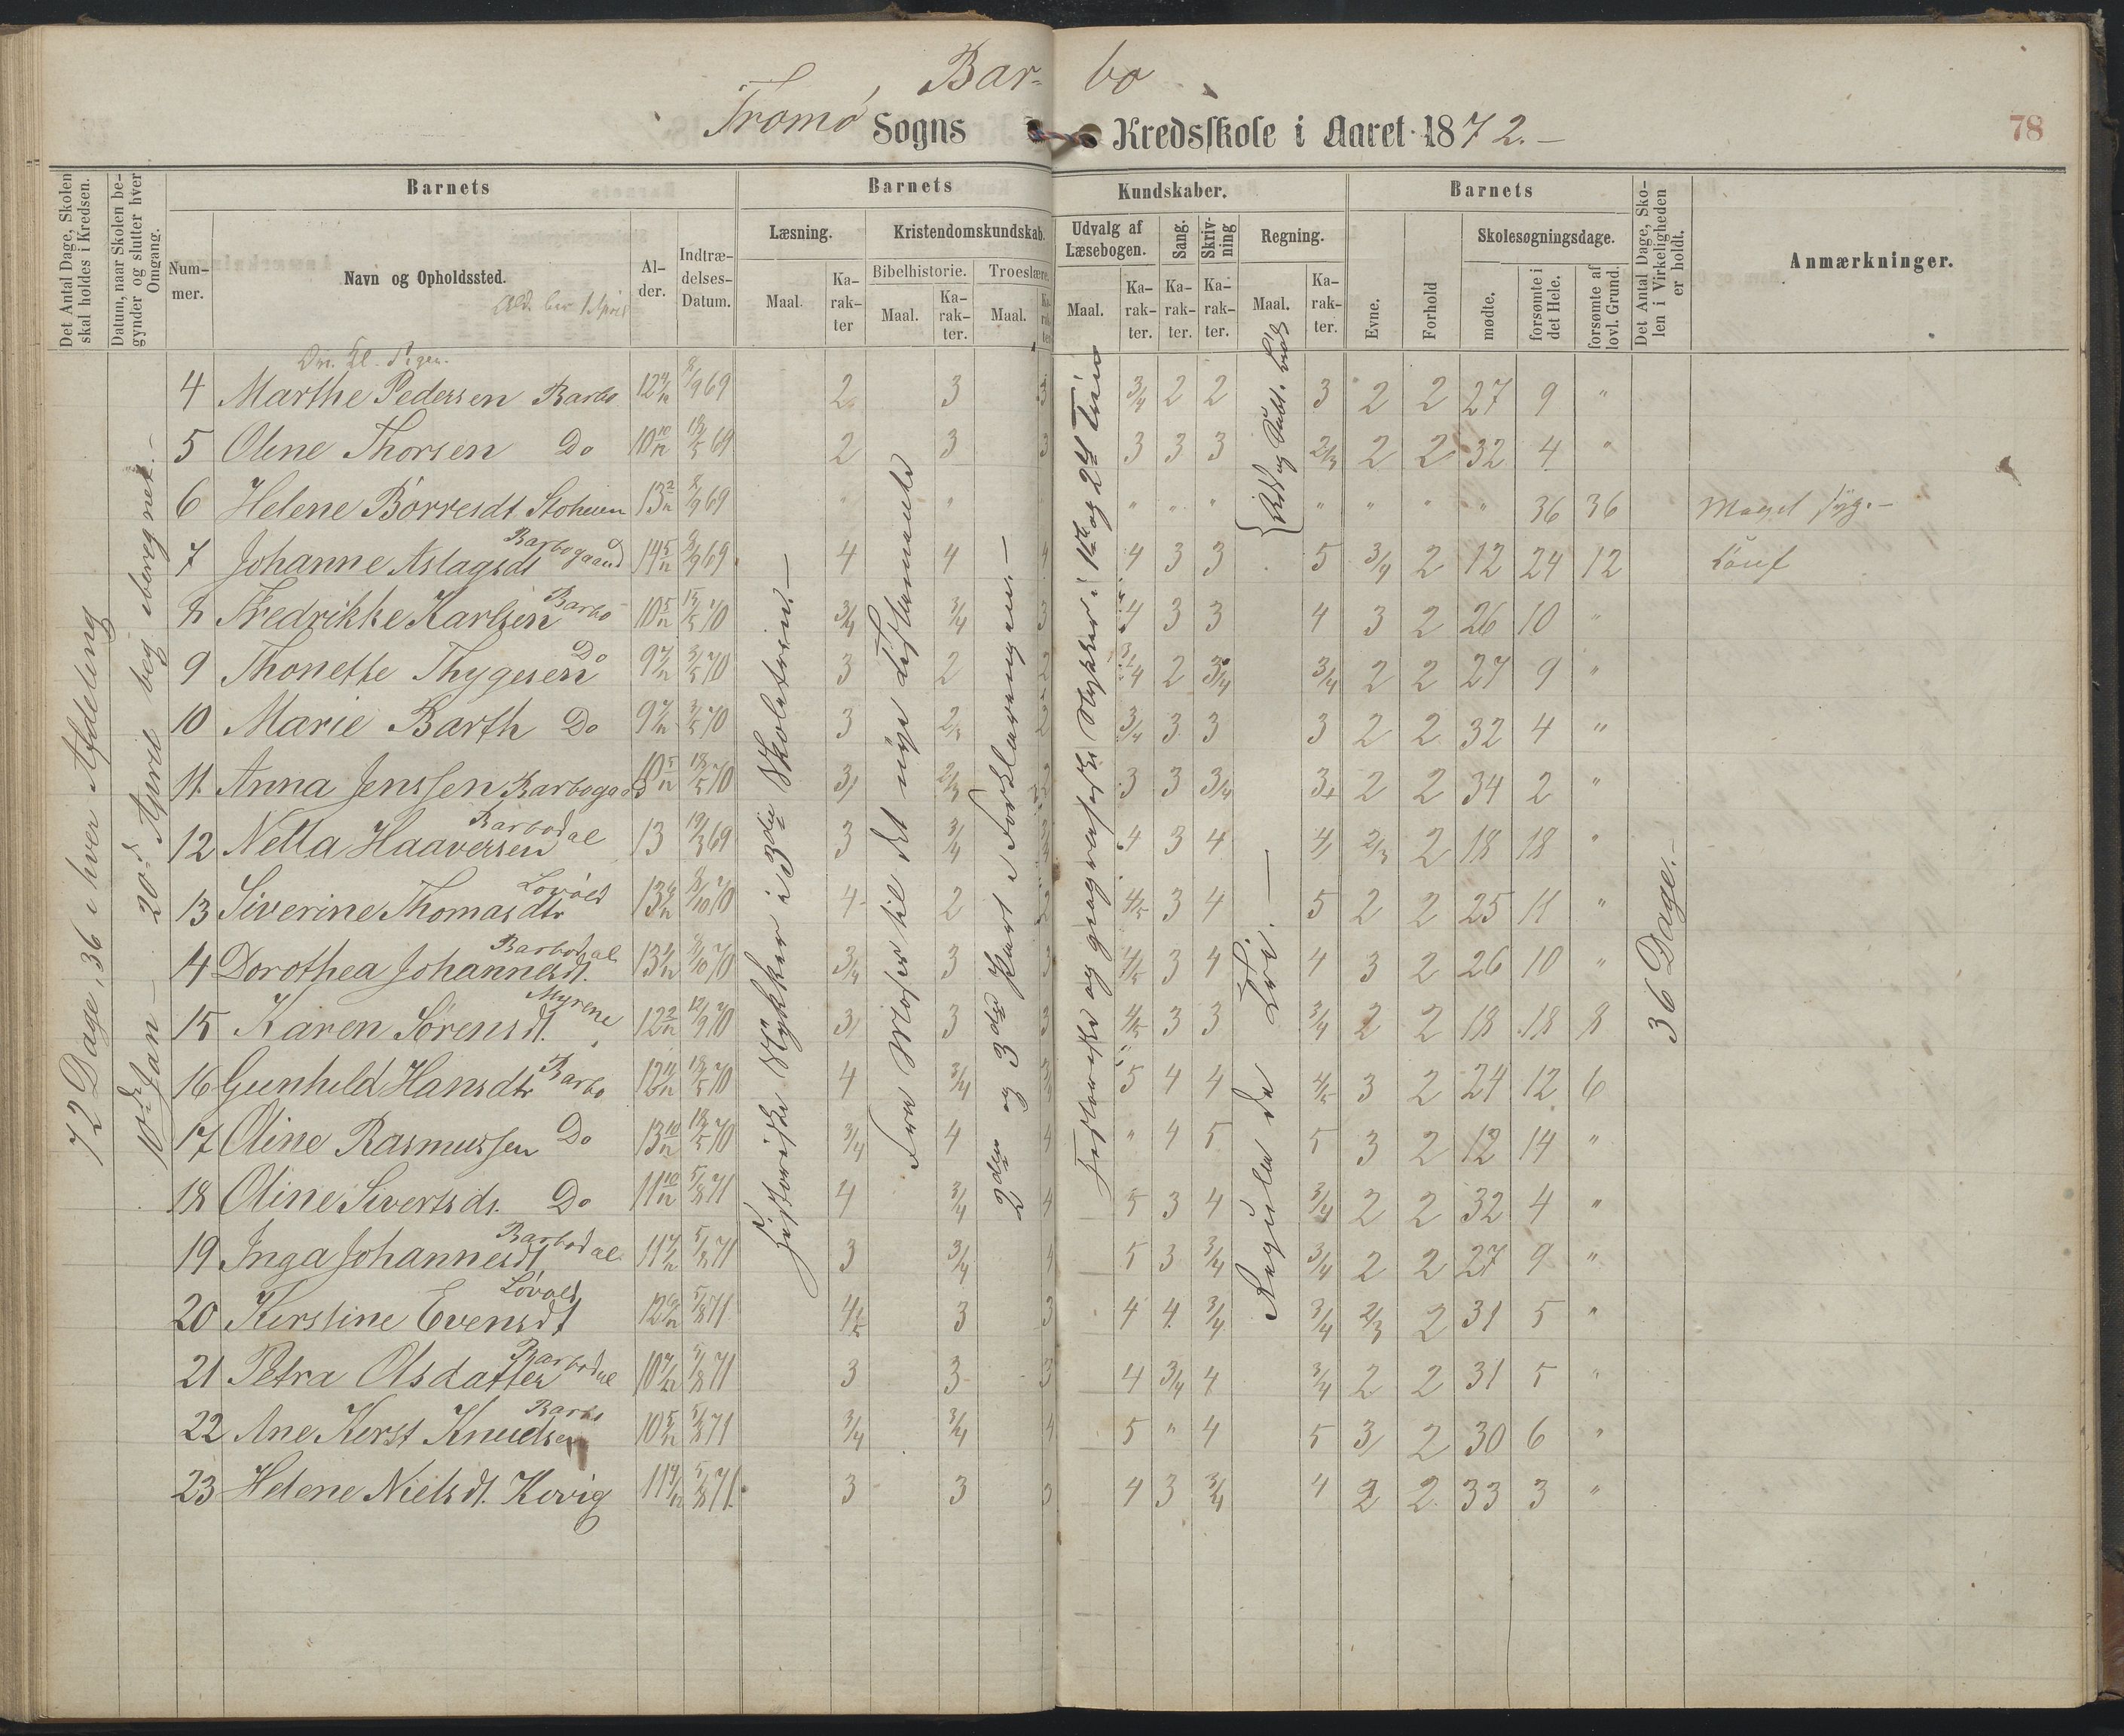 Bar- bo
Tromø Sogns Kredsskole i Aaret 1872.-
78
Det Antal Dage, Skolen skal holdes i Kredsen.
Datum, naar Skolen begynder og slutter hver Omgang.
Barnets
Barnets
Kundskaber.
Barnets
Det Antal Dage, Skolen i Virkeligheden er holdt.
Anmærkninger.
Nummer.
Navn og Opholdssted.
Alder.
Indtrædelses-Datum.
Læsning.
Kristendomskundskab.
Udvalg af Læsebogen.
Sang.
Skrivning
Regning.
Evne.
Forhold
Skolesøgningsdage.
Bibelhistorie.
Troeslære.
Maal.
Karakter
Maal.
Karakter.
Maal.
Karakter
Maal.
Karakter.
Karakter.
Karakter.
Maal.
Karakter.
mødte.
forsømte i det Hele.
forsømte af lovl. Grund.
72 Dage, 36 i hver Afdeling
10de Jan - 20d April beg iberegnet.-
Historiske Stykker i 3die Skoletrin.-
Fra Moses til det nye Testamente
2den og 3die Part i Forklaringen.-
Historiske og geografiske Stykker i 1ste og 2det Trin
Regula de Tri.-
36 Dage.-
4 Marthe Pedersen Barbo 12 9/69 2 3 3 3/4 2 2 3 2 2 27 9 "
5 Oline Thorsen Do 10 10/12 69 2 3 3 3 3 3 2/3 2 2 32 4 "
6 Helene Börresdt 13 2/12 69 " " " " " " " " " 36 36 Meget syg.-
7 Johanne Aslagsdt Barbogaard 14 5/12 69 4 4 4 4 3 3 5 3/4 2 12 24 12
8 Fredrikke Karlsen Barbo 10 5/12 70 3/4 3/4 3 4 3 3 4 3 2 26 10 "
9 Thonette Thygesen Do 9 7/12 70 3 2 2 3/4 2 3/4 3/4 2 2 27 9 "
10 Marie Barth Do 9 7/12 70 3 2/3 2 3/4 3 3 3 2 2 32 4 "
11. Anna Jenssen Barbogaard 10 5/12 70 3 2/3 2 3 3 3/4 3+ 2 2 34 2 "
12 Netta Haaversen Barbodal 13 69 3 3/4 3/4 4 3 4 4 2/3 2 18 18 "
13 Siverine Thomasdtr 13 10/70 4 2 2 4/5 3 4 5 2 2 25 11 "
4 Dorothea Johannesdt. Barbodal 13 10/70 3/4 3 3 4/5 3 4 4 3 2 26 10 "
15 Karen Sørensdt. Myrene 12 2/12 70 3 3 3 4/5 3 3 3/4 2 2 18 18 8
16 Gunhild Hansdtr Barbo 12 70 4 3/4 3/4 5 4 4 4/5 3 2 24 12 6
17 Oline Rasmussen Do 13 10/12 70 3/4 4 4 " 4 5 5 3 2 12 14 "
18 Oline Sivertsdt. Do 11 10/12 5/8 71 4 3/4 4 5 3 4 3/4 2 2 32 4 "
19 Inga Johannesdt Barbodal 11 5/8 71 3 3/4 4 5 3 3/4 3/4 2 2 27 9 "
20 Kirstine Evensdt Lövold 12 5/8 71 4/5 3 3 4 4 3/4 3/4 2/3 2 31 5 "
21 Petra Olsdatter Barbodal 10 5/8 71 3 3 3 4 3/4 4 3/4 2 2 31 5 "
22 Ane Kirst Knudsen Barbo 10 5/12 5/8 71 3/4 3/4 4 5 " 4 5 3 2 30 6 "
23 Helene Nielsdt. Kovig 11 5/8 71 3 3 3 4 3 3/4 4 2 2 33 3 "